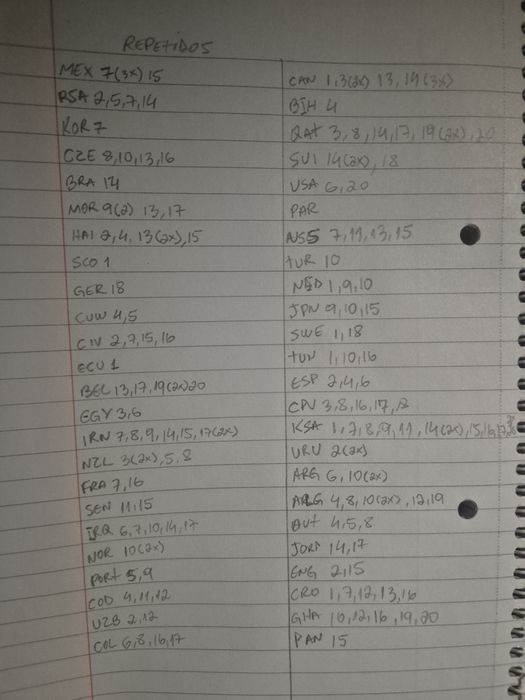 REPETIDOS
MEX 7(3x) 15
RSA 2,5,7,14
KOR 7
CZE 8,10,13,16
BRA 14
MOR 9(2) 13,17
HAI 2,4, 13(2x),15
SCO 1
GER 18
CUW 4,5
CIV 2,7,15,16
ECU 1
BEL 13,17,19(2x)20
EGY 3,6
IRN 7,8,9,14,15,17(2x)
NZL 3(2x),5,8
FRA 7,16
SEN 11,15
IRQ 6,7,10,14,17
NOR 10(2x)
PORT 5,9
COD 4,11,12
UZB 2,12
COL 6,8,16,17
CAN 1,3(2x) 13, 19(3x)
BIH 4
QAT 3,8,14,17, 19(2x),20
SUI 14(2x),18
USA 6,20
PAR
AUS 7,11,13,15
TUR 10
NED 1,9,10
JPN 9,10,15
SWE 1,18
TUN 1,10,16
ESP 2,4,6
CPV 3,8,16,17,
KSA 1,7,8,9,11, 14(2x),15,16
URU 2(2x)
ARG 6,10(2x)
4,8,10(2x),12,19
AUT 4,5,8
JOR 14,17
ENG 2,15
CRO 1,7,12,13,16
GHA 10,12,16,19,20
PAN 15